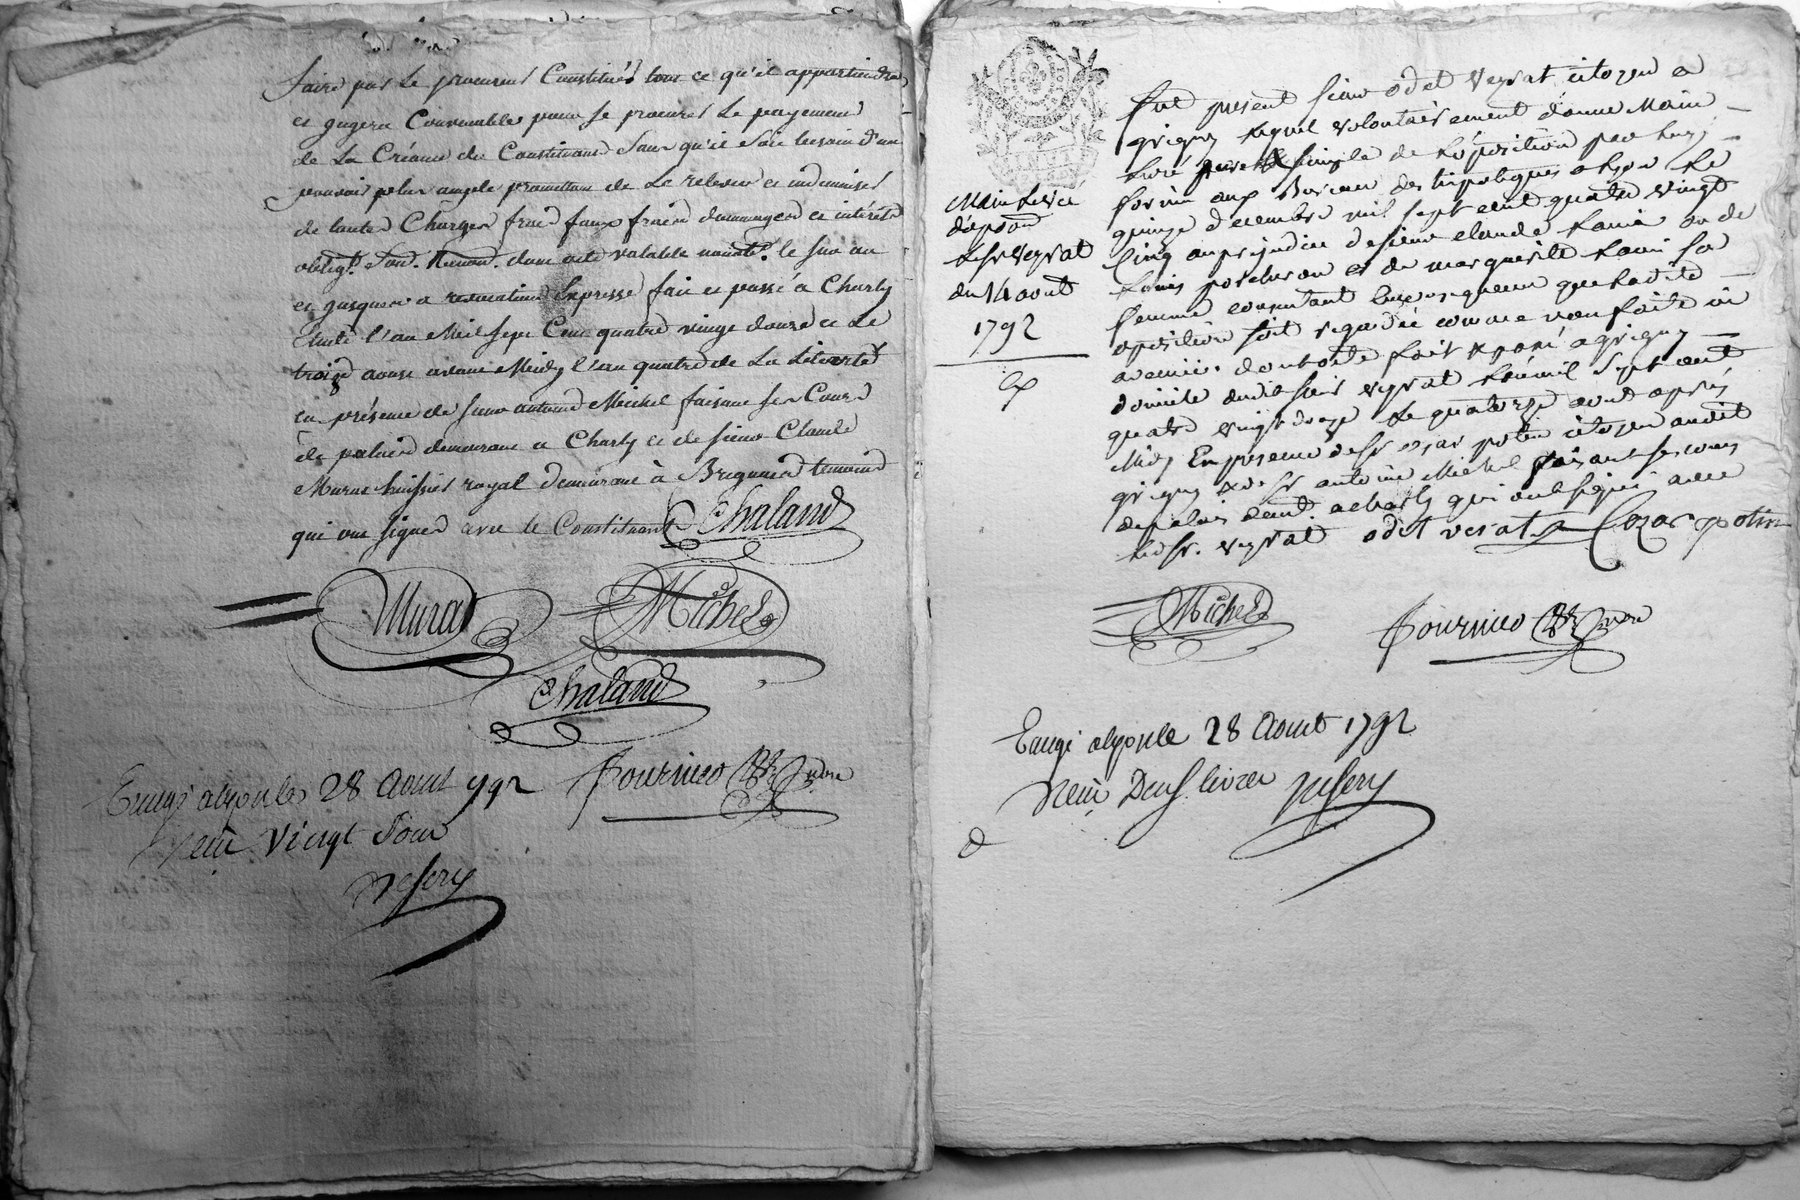 faire par le procureur Constitué tout ce qu'il appartiendra
et jugera Convenable pour se procurer Le payement
de La Créance du Constituant Sans qu'il Soit besoin d'un
pouvoir plus ample promettant de Le relever et indemniser
de toutes Charges frais faux frais dommages et intérêts
obligt. Soum. Renon. dont acte valable nonobt. le sur an
et jusques a revocation Expresse fait et passé à Charly
Etude l'an Mil Sept Cent quatre vingt douze et Le
treize aoust avant Midy l'an quatre de La Liberté
en présence de sieur antoine Michel faisant ses Cours
de palais demeurant a Charly et de sieur Claude
Murat huissier royal demeurant à Brignais temoins
qui ont signés avec le Constituant Chaland
Murat
Michel
Chaland
Fournier
alyon le 28 Aoust 792
Vingt Sous
Main Levée
d'opoon
Le Sr veyrat
du 14 aout
1792
Ex
fut present sieur odet veyrat citoyen a
grigny Lequel volontairement donne Main
Levé simple de Loposition par Luy
formé aux Bureau des hipoteques a lyon Le
quinze decembre mil sept cent quatre vingt
Cinq au prejudice de sieur claude
Louis porcheron et de marguerite sa
femme consentant que Ladite
oposition soit regardée comme non faite ni
avenüe. dont acte fait & passé a grigny
domicile dudit sieur veyrat L'an mil Sept cent
quatre vingt douze Le quatorze aout après
Midy En presence de Sr cezar potin citoyen audit
grigny & de Sr antoine Michel faisant ses cours
de palais demt. a charly qui ont signé avec
Ledsr. veyrat odet verat Cezar potin
Michel
Fournier
alyon le 28 Aoust 1792
Deux livres